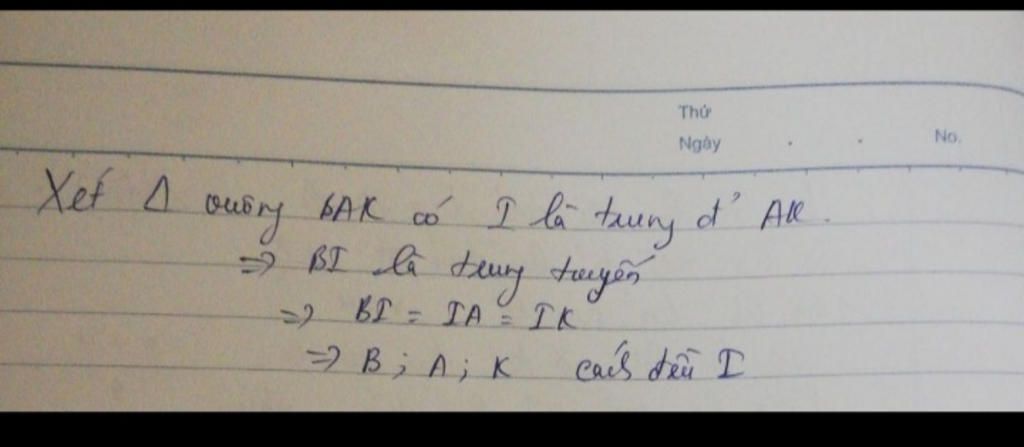 Thứ
Ngày . . No.
Xét Δ vuông BAK có I là trung đ' AK.
=> BI là trung tuyến
=> BI = IA = IK
=> B; A; K cách đều I